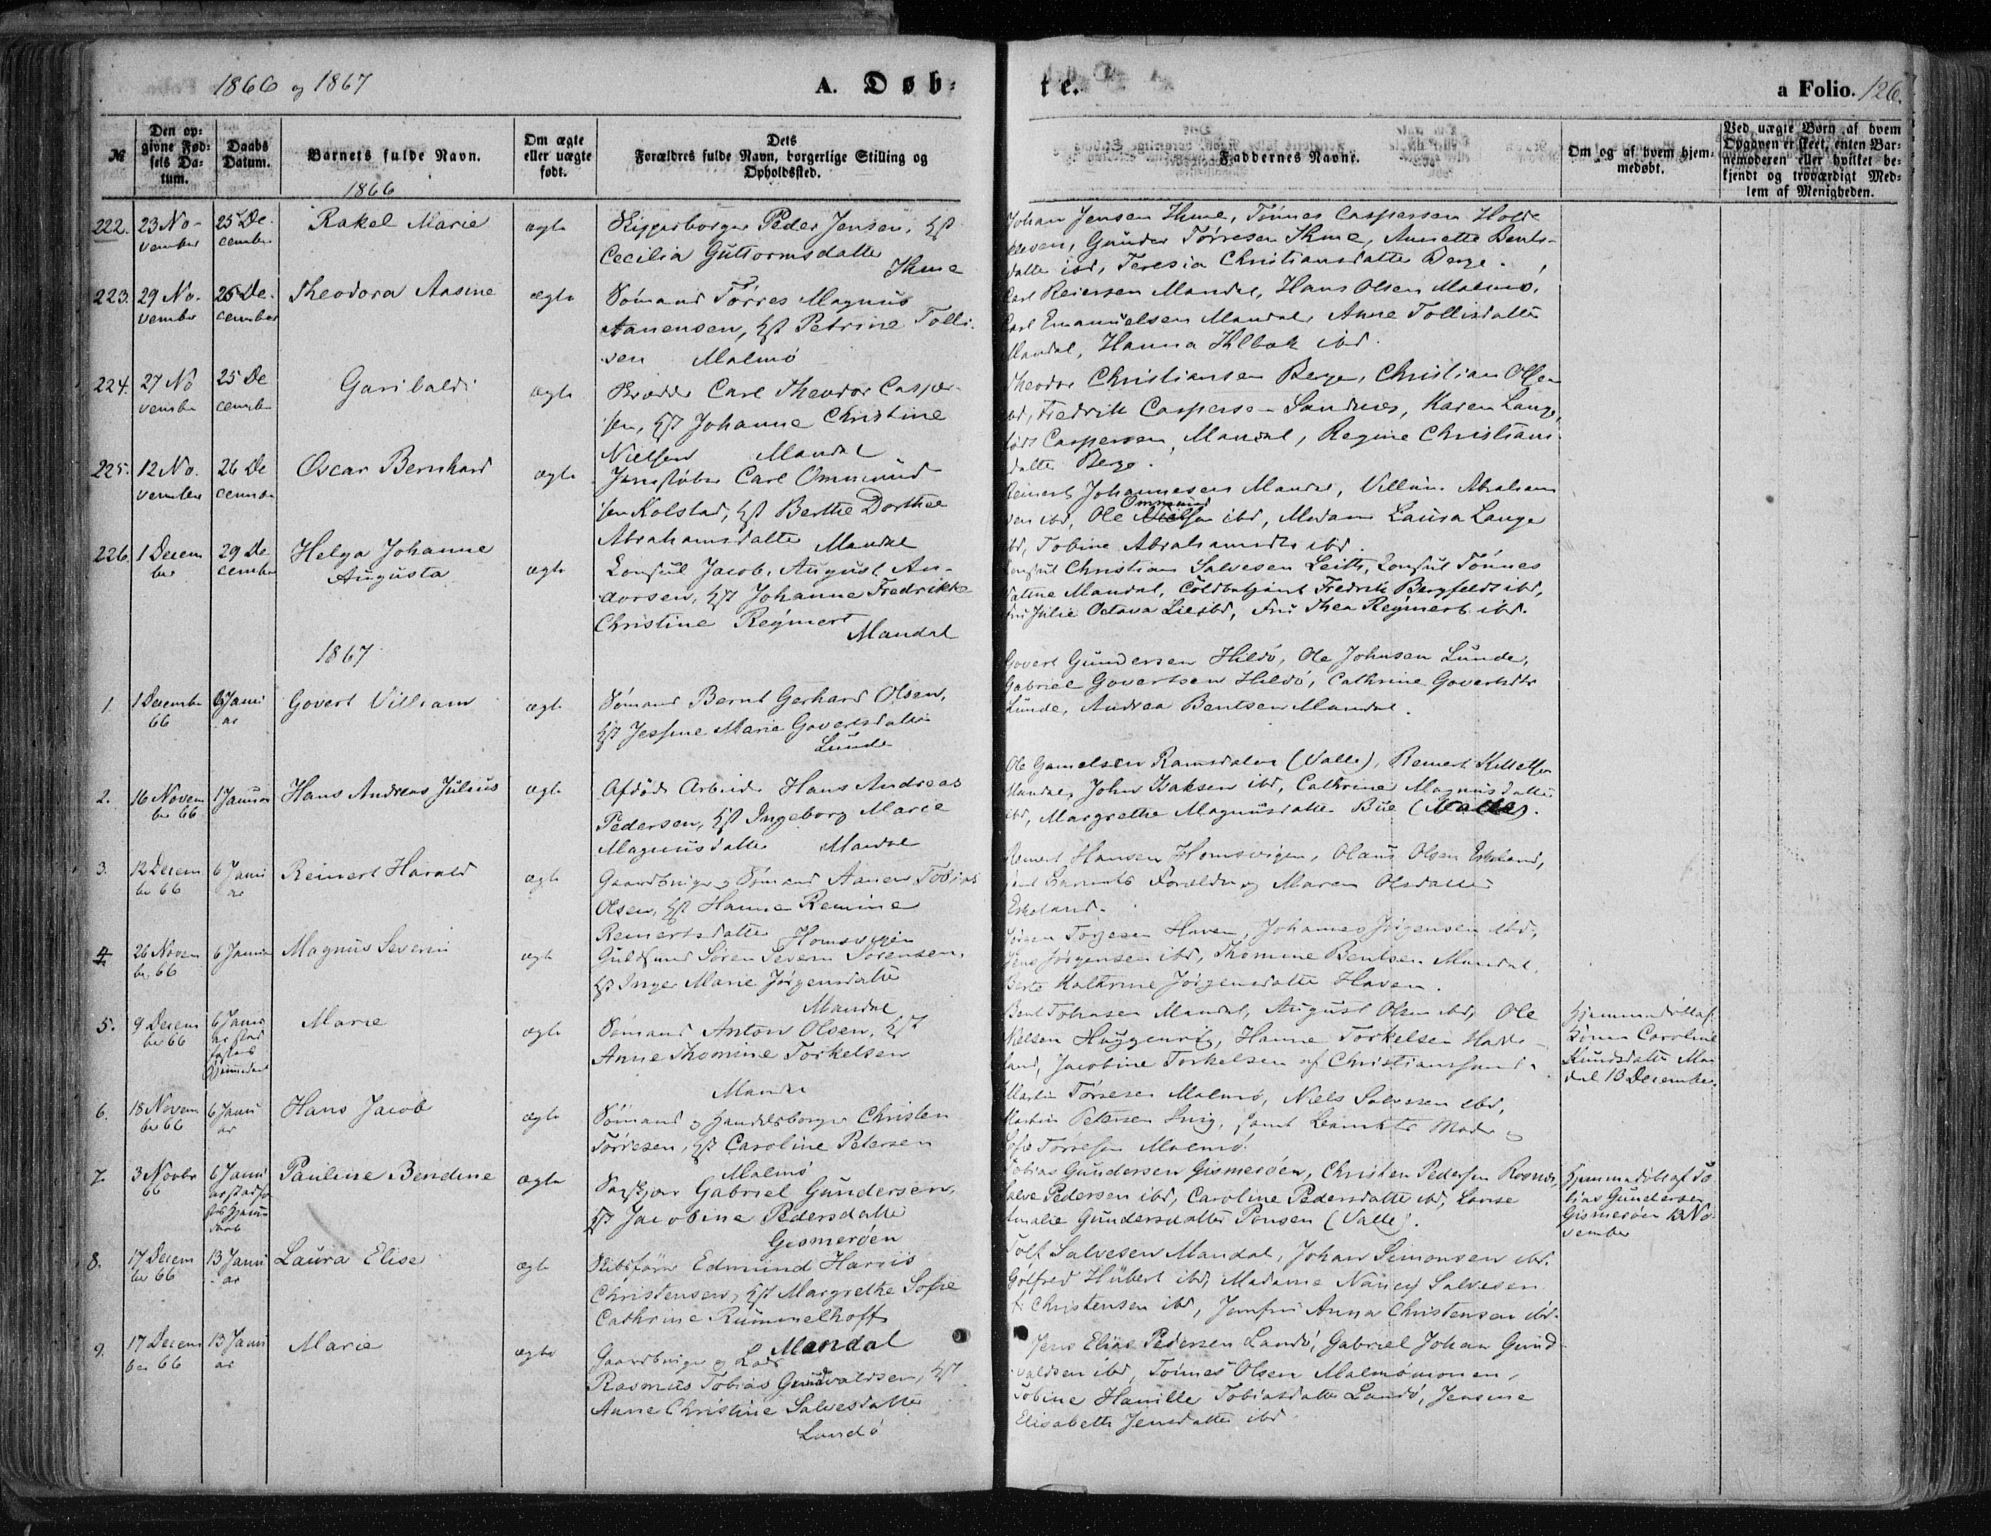 1866 og 1867
A. Døb-
te.
a Folio. 126.
№
Den opgivne Fødsels Datum.
Daabs Datum.
Barnets fulde Navn.
Om ægte eller uægte født.
Dets Forældres fulde Navn, borgerlige Stilling og Opholdssted.
Faddernes Navne.
Om og af hvem hjemmedøbt.
Ved uægte Børn af hvem Opgaven er skeet, enten Barnemoderen eller hvilket bekjendt og troværdigt Medlem af Menigheden.
1866
222. 23 November 25 December Rakel Marie ægte
Skipperborger Peder Jensen, Hst
Cecilia Guttormsdatter
Skme
Johan Jensen Skme, Tönnes Caspersen Holte
kleven, Gunder Törresen Skme, Annette Bents-
datter ibd, Teresia Christiansdatter Berge.
223. 29 November 25 December Theodora Aasine ægte
Sömand Törres Magnus
Aanensen, Hst Petrine Tolli-
sen Malmö
Carl Reiersen Mandal, Hans Olsen Malmö,
Carl Emanuelsen Mandal, Anne Tollisdatter
Mandal, Hanna Klbak ibd.
224. 27 November 25 December Garibaldi ægte
Carl Theodor Casper-
sen, Hst Johanne Christine
Nielsen Mandal
Theodor Christiansen Berge, Christian Olsen
ibd, Fredrik Caspersen Sandnes, Karen Lange,
født Caspersen, Mandal, Regine Christians-
datter Berge.
225. 12 November 26 December Oscar Bernhard ægte
Jernstøber Carl Ommund-
sen Kolstad, Hst Berthe Dorthee
Abrahamsdatter Mandal
Reinert Johannesen Mandal, Villum Abraham
sen ibd, Ole Ommund sen ibd, Madam Laura Lange
ibd, Tobine Abrahamsdtr ibd.
226. 1 December 29 December Helga Johanne
Augusta ægte
Consul Jacob, August An-
dorsen, Hst Johanne Fredrikke
Christine Reymert
Mandal
Consul Christian Salvesen Leith, Consul Tönnes
Mandal, Toldbetjent Fredrik Bergfeldt ibd,
Fru Julie Octava Lie ibd, Fru Thea Reymert ibd.
1867
1. 1 December 66 6 Januar Govert Villiam ægte
Sömand Bernt Gerhard Olsen,
Hst Jessine Marie Govertsdatter
Lunde
Govert Gundersen Hildö, Ole Johnsen Lunde,
Gabriel Govertsen Hildö, Cathrine Govertsdtr
Lunde, Andrea Bentsen Mandal.
2. 16 November 66 1 Januar Hans Andreas Julius ægte
Afdöd Arbeider Hans Andreas
Pedersen, Hst Ingeborg Marie
Magnusdatter Mandal
Ole Gamelsen Ramsdalen (Valle), Reinert Kittelsen
Mandal, John Isaksen ibd, Cathrine Magnusdatter
ibd, Margrethe Magnusdatter Bue (Valle).
3. 12 December 66 6 Januar Reinert Harald ægte
Gaardbruger og Sömand Aanen Tobias
Olsen, Hst Hanne Remine
Reinertsdatter Homsvigen
Reinert Hansen Homsvigen, Olaus Olsen Eskeland,
samt Barnets Forældre og Maren Olsdatter
Eskeland.
4. 26 November 66 6 Januar Magnus Severin ægte
Guldsmed Sören Severin Sörensen,
Hst Inger Marie Jörgensdatter
Mandal
Jörgen Torjesen Haven, Johannes Jörgensen ibd,
Jens Jörgensen ibd, Thomine Bentsen Mandal,
Berte Kathrine Jörgensdatter Haven.
5. 9 December 66 6 Januar Marie ægte
Sömand Anton Olsen, Hst
Anne Thomine Torkelsen
Mandal
Bent Tobiasen Mandal, August Olsen ibd, Ole
Nielsen Huggenröy, Hanne Torkelsen Hadde-
land, Jacobine Torkelsen af Christianssand.
Hjemmedöbt af
Konen Caroline
Knudsdatter Man-
dal 13 December.
6. 18 November 66 6 Januar Hans Jacob ægte
Sömand og Handelsborger Christen
Törresen, Hst Caroline Petersen
Malmö
Martin Törresen Malmö, Niels Salvesen ibd,
Martin Petersen Snig, samt Barnets Moder og
Sofie Torresen Malmö.
7. 3 Novbr 66 6 Januar Pauline Bendine ægte
Gabriel Gundersen,
Hst Jacobine Pedersdatter
Gismeröen
Tobias Gundersen Gismeröen, Christen Pedersen Rosnes,
Salve Pedersen ibd, Caroline Pedersdatter ibd, Lovise
Amalie Gundersdatter Ponsen (Valle).
Hjemmedöbt af To-
bias Gundersen
Gismeröen 13 No-
vember
8. 17 December 66 13 Januar Laura Elise ægte
Skibsförer Edmund Harris
Christensen, Hst Margrethe Sofie
Cathrine Rummelhoff
Mandal
Tolf Salvesen Mandal, Johan Simonsen ibd.
Gotfred Hübert ibd, Madame Nancy Salvesen
f. Christensen ibd, Jomfru Anna Christensen ibd.
9. 17 December 66 13 Januar Marie ægte
Gaardbruger og Lods
Rasmus Tobias Gundvaldsen, Hst
Anne Christine Salvesdatter
Landö
Jens Elias Pedersen Landö, Gabriel Johan Gund-
valdsen ibd, Tönnes Olsen Malmömonen,
Tobine Hamille Tobiasdatter Landö, Jensine
Elisabeth Jensdatter ibd.